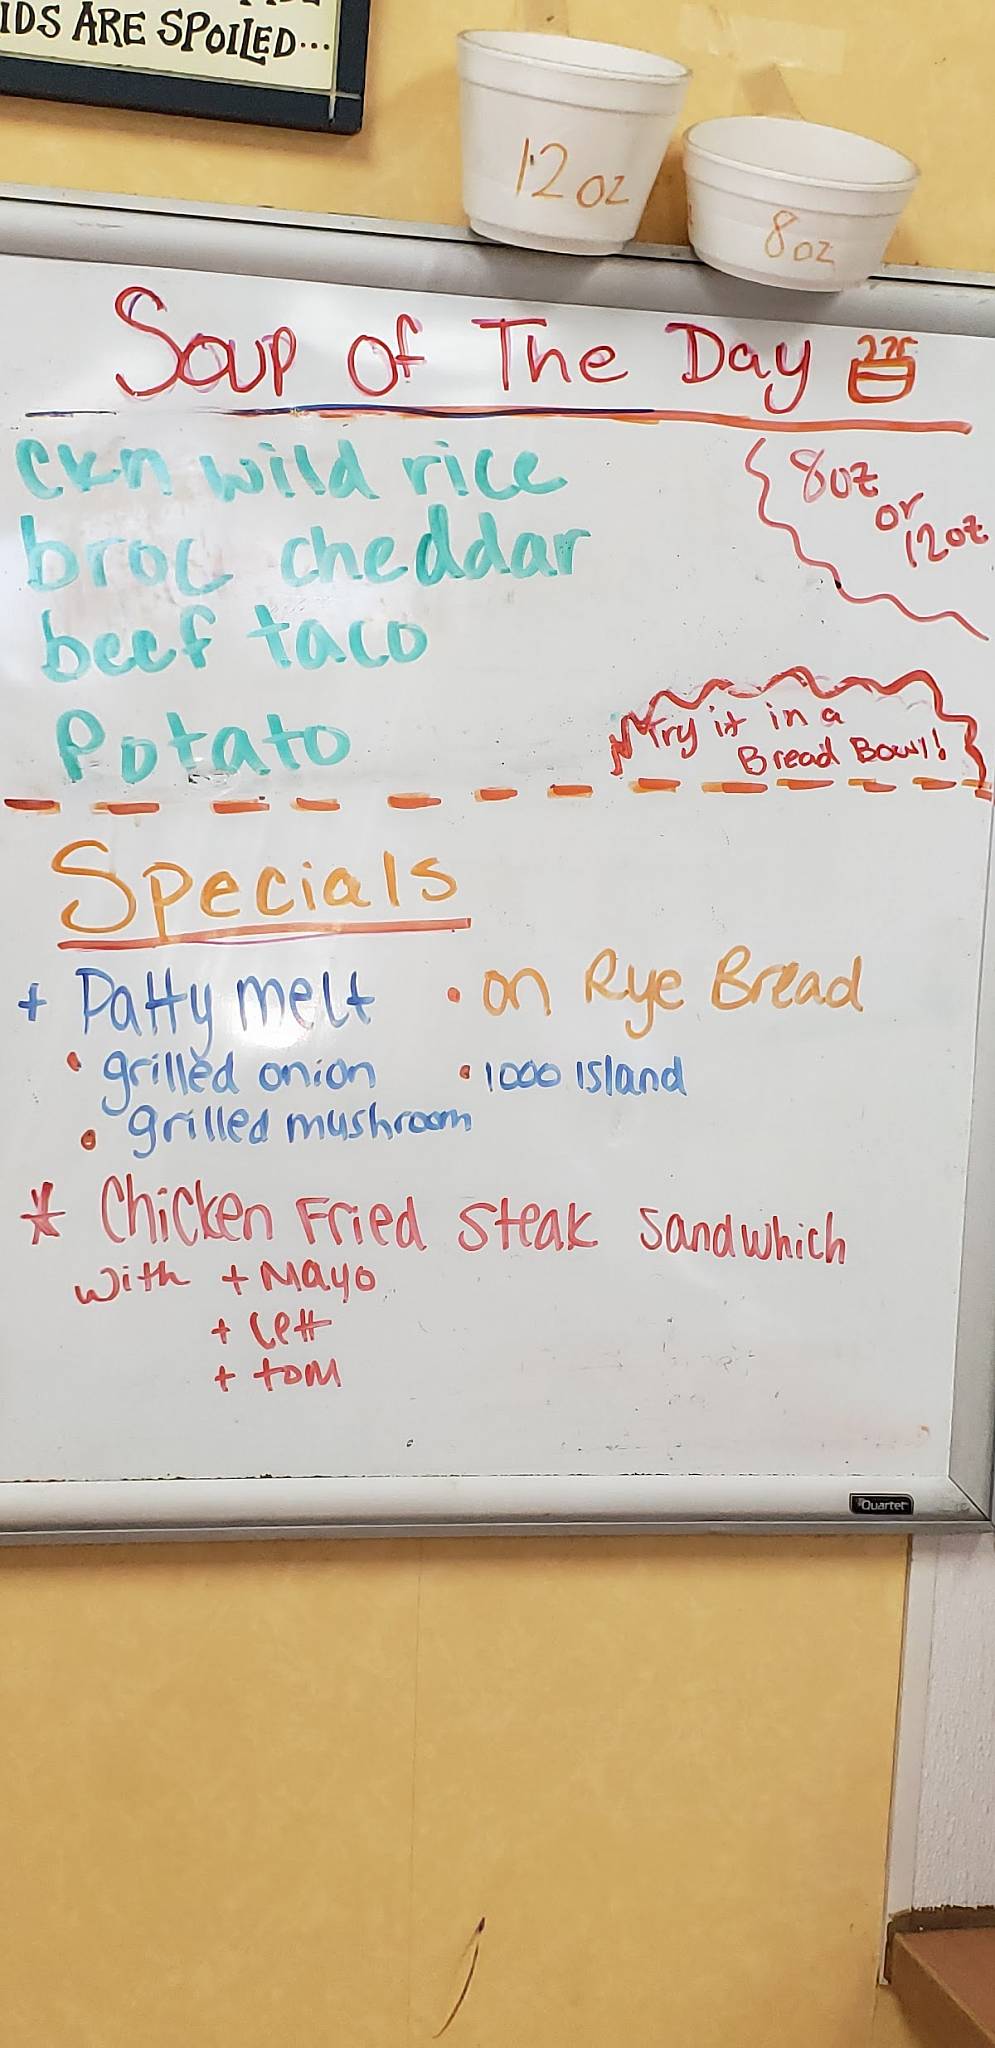 IDS ARE SPOILED...
12 oz
8oz
Soup of The Day
ckn wild rice
8oz
or
12oz
broc cheddar
beef taco
Potato
Try it in a
Bread Bowl!
Specials
+ Patty melt • on Rye Bread
• grilled onion • 1000 island
• grilled mushroom
* Chicken Fried Steak Sandwhich
with + Mayo
+ Lett
+ tom
Quartet